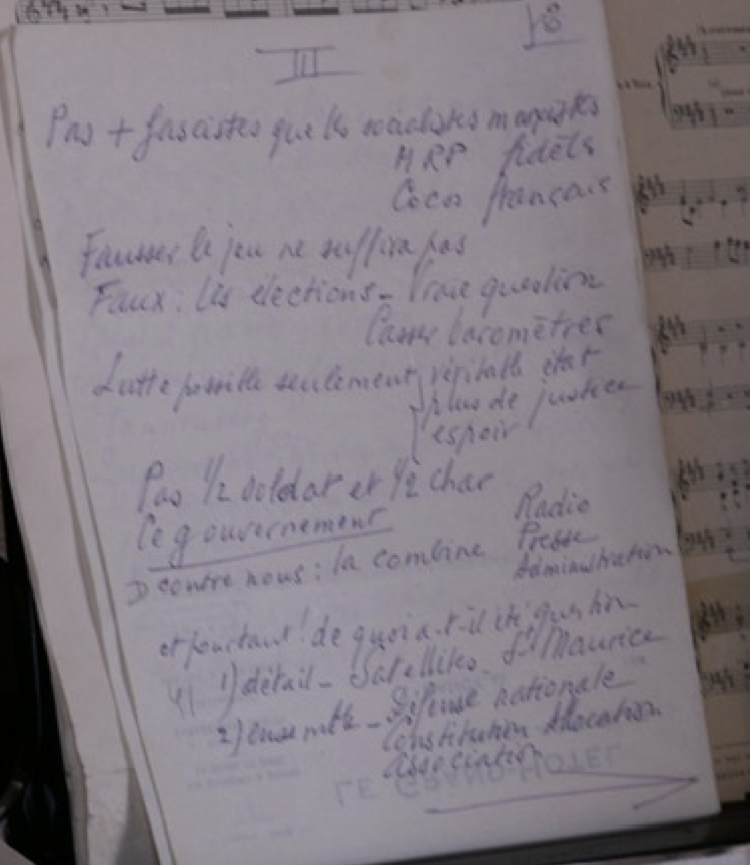 18
III
Pas + fascistes que les socialistes marxistes
MRP fidèles
Cocos français
Fausser le jeu ne suffira pas
Faux : les élections - Vraie question
Casser baromètres
Lutte possible seulement { véritable état
plus de justice
espoir
Pas 1/2 soldat et 1/2 char
Ce gouvernement
contre nous : la combine
Radio
Presse
Administration
et pourtant ! de quoi a-t-il été question
1) détail - Satellites - St Maurice
2) ensemble - Défense nationale
Constitution Allocation
Association
LE GRAND-HOTEL